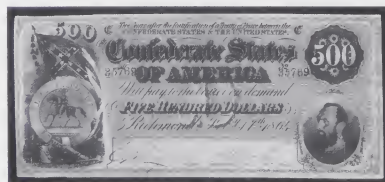 500 C Two Years after the Ratification of a Treaty of Peace between the C
CONFEDERATE STATES & THE UNITED STATES,
Confederate States
500
35769 35769
OF AMERICA
Will pay to the bearer on demand
FIVE HUNDRED DOLLARS
Richmond Feb. 17th 1864